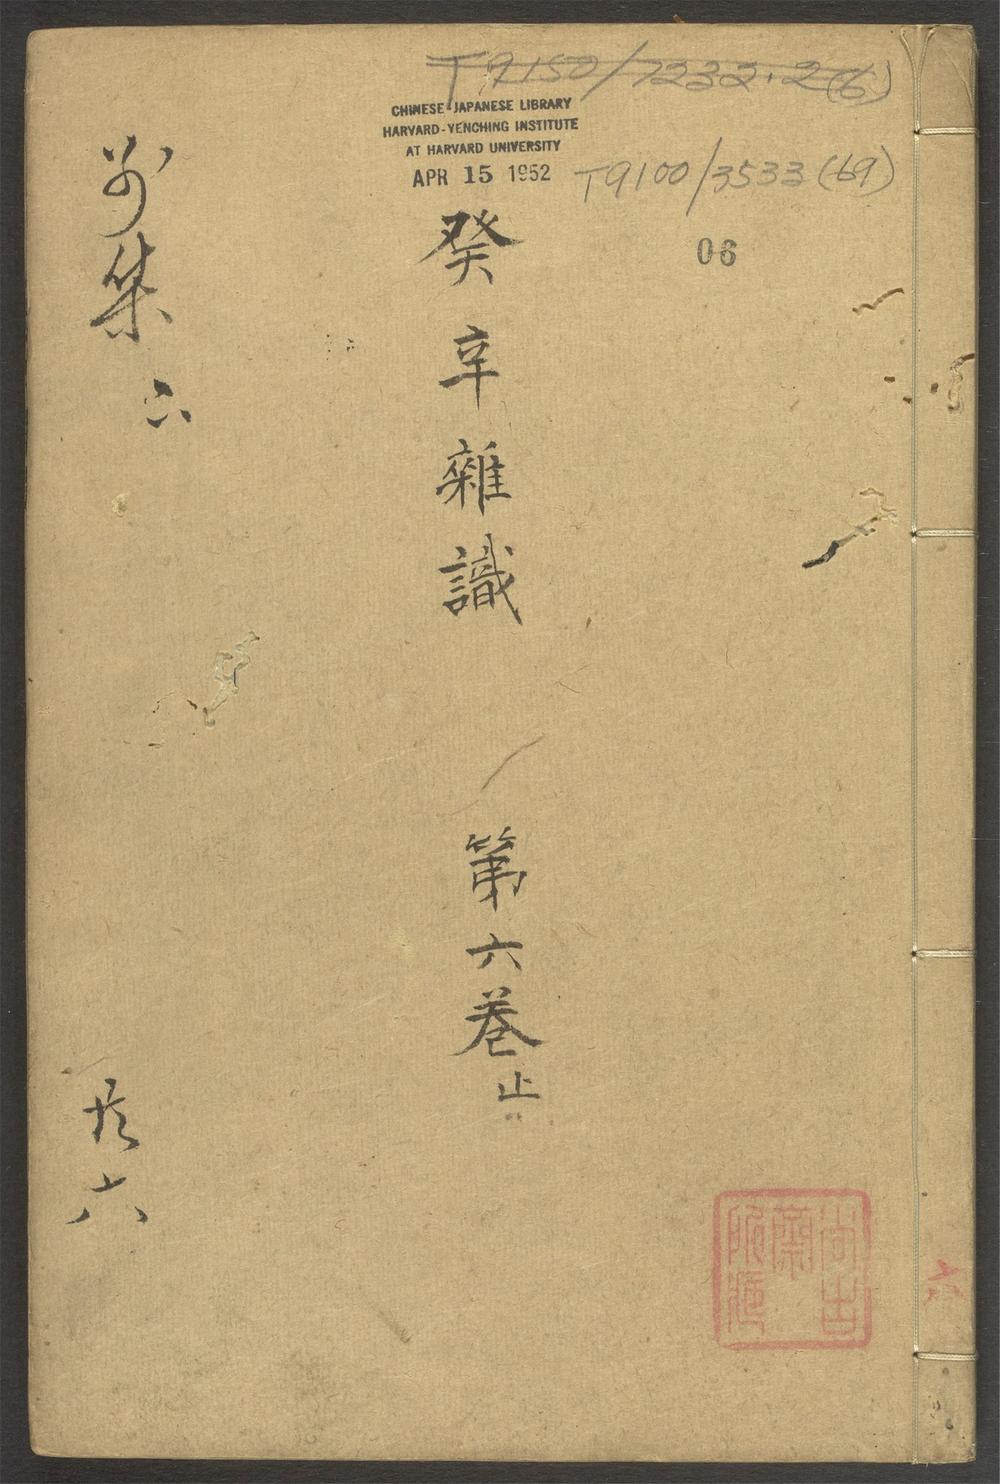 T9150/7232.2(6)
CHINESE-JAPANESE LIBRARY
HARVARD-YENCHING INSTITUTE
AT HARVARD UNIVERSITY
APR 15 1952
T9100/3533(69)
06
癸辛雜識
第六卷止
別集
六
尚古
齋
六